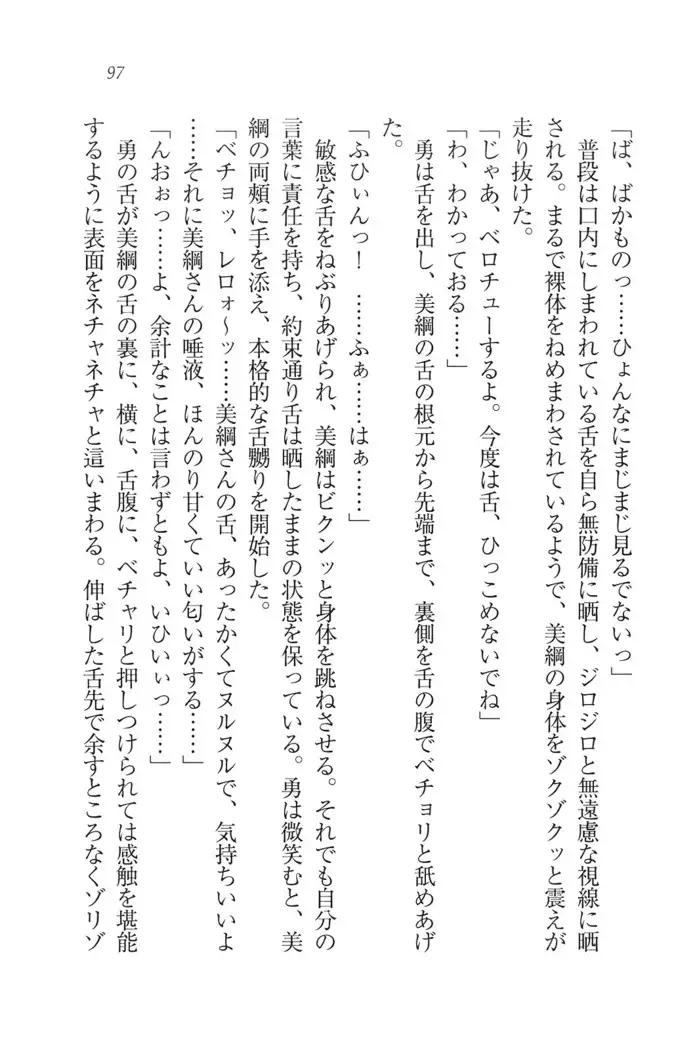 97
「ば、ばかものっ……ひょんなにまじまじ見るでないっ」
普段は口内にしまわれている舌を自ら無防備に晒し、ジロジロと無遠慮な視線に晒
される。まるで裸体をねめまわされているようで、美綱の身体をゾクゾクッと震えが
走り抜けた。
「じゃあ、ベロチューするよ。今度は舌、ひっこめないでね」
「わ、わかっておる……」
勇は舌を出し、美綱の舌の根元から先端まで、裏側を舌の腹でベチョリと舐めあげ
た。
「ふひぃんっ！　……ふぁ……はぁ……」
敏感な舌をねぶりあげられ、美綱はビクンッと身体を跳ねさせる。それでも自分の
言葉に責任を持ち、約束通り舌は晒したままの状態を保っている。勇は微笑むと、美
綱の両頰に手を添え、本格的な舌嬲りを開始した。
「ベチョッ、レロォ～ッ……美綱さんの舌、あったかくてヌルヌルで、気持ちいいよ
……それに美綱さんの唾液、ほんのり甘くていい匂いがする……」
「んおぉっ……よ、余計なことは言わずともよ、いひいぃっ……」
勇の舌が美綱の舌の裏に、横に、舌腹に、ベチャリと押しつけられては感触を堪能
するように表面をネチャネチャと這いまわる。伸ばした舌先で余すところなくゾリゾ